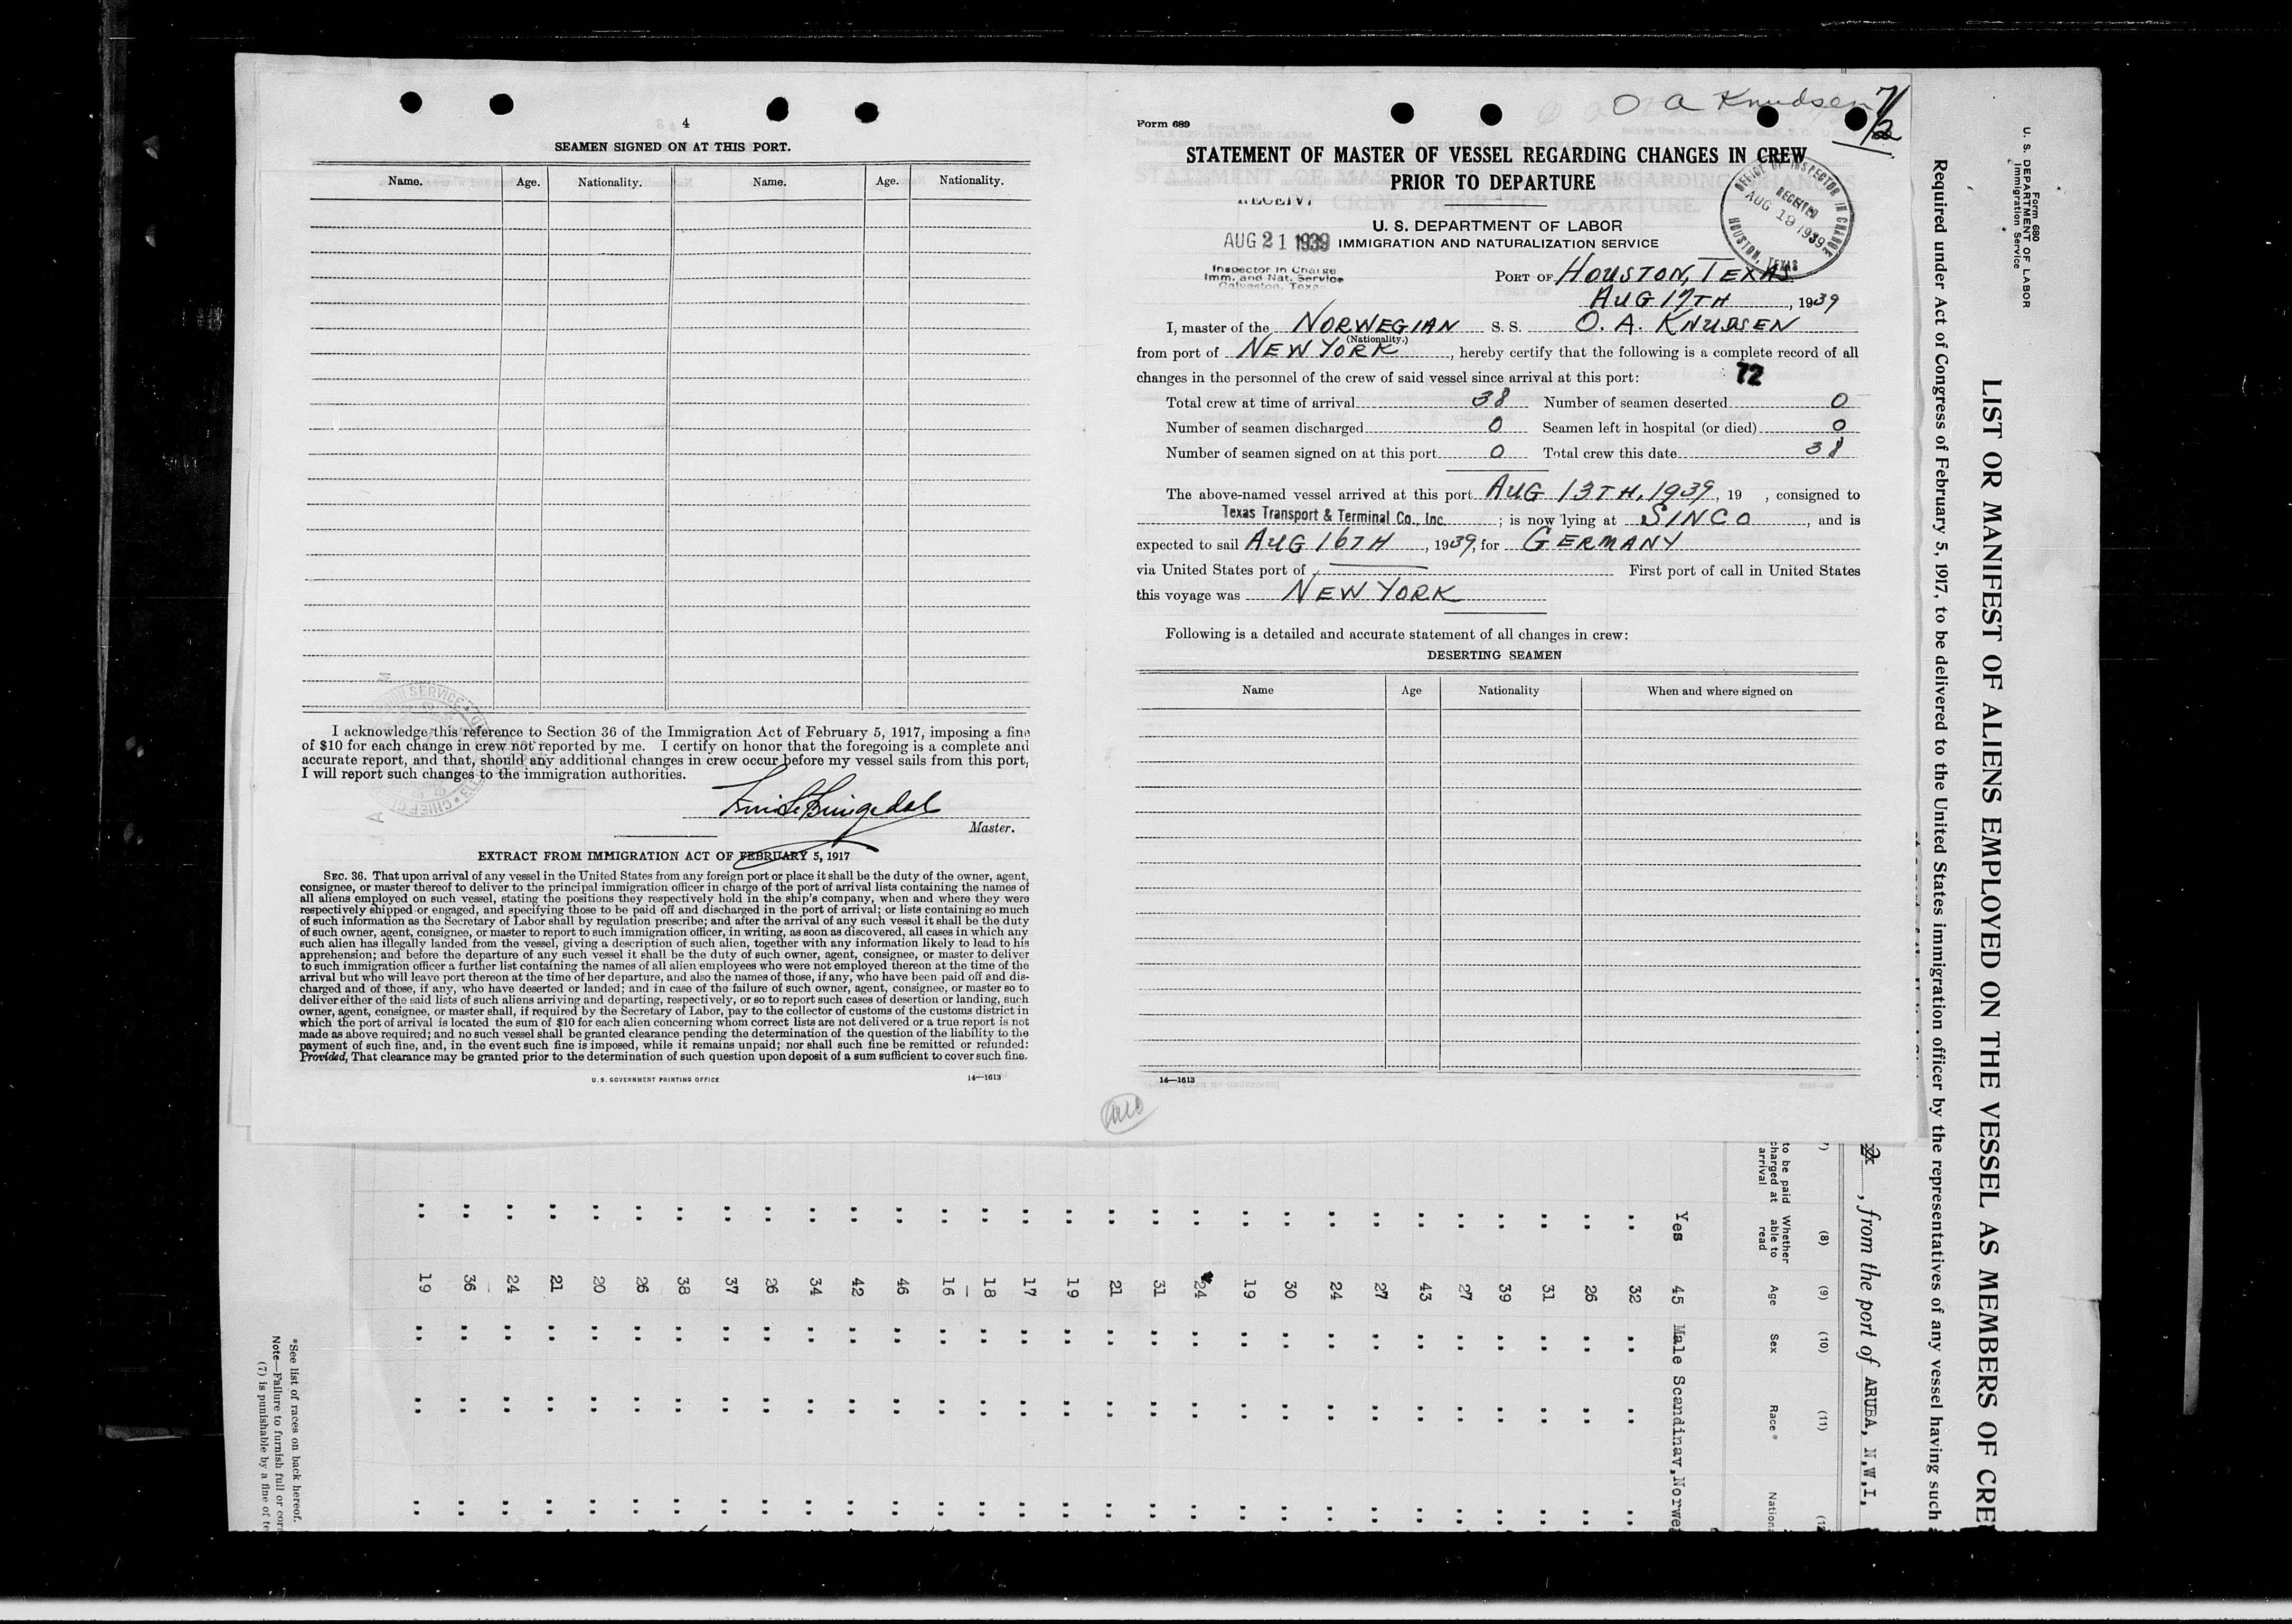 4
SEAMEN SIGNED ON AT THIS PORT.
Name. Age. Nationality. Name. Age. Nationality.
I acknowledge this reference to Section 36 of the Immigration Act of February 5, 1917, imposing a fine
of $10 for each change in crew not reported by me. I certify on honor that the foregoing is a complete and
accurate report, and that, should any additional changes in crew occur before my vessel sails from this port,
I will report such changes to the immigration authorities.
Master.
EXTRACT FROM IMMIGRATION ACT OF FEBRUARY 5, 1917
SEC. 36. That upon arrival of any vessel in the United States from any foreign port or place it shall be the duty of the owner, agent,
consignee, or master thereof to deliver to the principal immigration officer in charge of the port of arrival lists containing the names of
all aliens employed on such vessel, stating the positions they respectively hold in the ship's company, when and where they were
respectively shipped or engaged, and specifying those to be paid off and discharged in the port of arrival; or lists containing so much
of such information as the Secretary of Labor shall by regulation prescribe; and after the arrival of any such vessel it shall be the duty
of such owner, agent, consignee, or master to report to such immigration officer, in writing, as soon as discovered, all cases in which any
such alien has illegally landed from the vessel, giving a description of such alien, together with any information likely to lead to his
apprehension; and before the departure of any such vessel it shall be the duty of such owner, agent, consignee, or master to deliver
to such immigration officer a further list containing the names of all alien employees who were not employed thereon at the time of the
arrival but who will leave port thereon at the time of her departure, and also the names of those, if any, who have been paid off and dis-
charged and of those, if any, who have deserted or landed; and in case of the failure of such owner, agent, consignee, or master so to
deliver either of the said lists of such aliens arriving and departing, respectively, or so to report such cases of desertion or landing, such
owner, agent, consignee, or master shall, if required by the Secretary of Labor, pay to the collector of customs of the customs district in
which the port of arrival is located the sum of $10 for each alien concerning whom correct lists are not delivered or a true report is not
made as above required; and no such vessel shall be granted clearance pending the determination of the question of the liability to the
payment of such fine, and, in the event such fine is imposed, while it remains unpaid; nor shall such fine be remitted or refunded:
Provided, That clearance may be granted prior to the determination of such question upon deposit of a sum sufficient to cover such fine.
U. S. GOVERNMENT PRINTING OFFICE 14—1613
O A Knudsen
Form 689
STATEMENT OF MASTER OF VESSEL REGARDING CHANGES IN CREW
PRIOR TO DEPARTURE
OFFICE OF INSPECTOR IN CHARGE
RECEIVED
AUG 19 1939
HOUSTON, TEXAS
U. S. DEPARTMENT OF LABOR
AUG 21 1939 IMMIGRATION AND NATURALIZATION SERVICE
Inspector in Charge
Imm. and Nat. Service
Galveston, Texas
PORT OF HOUSTON, TEXAS
AUG 17TH, 1939
I, master of the NORWEGIAN S. S. O. A. KNUDSEN
(Nationality.)
from port of NEW YORK, hereby certify that the following is a complete record of all
changes in the personnel of the crew of said vessel since arrival at this port: 72
Total crew at time of arrival 38 Number of seamen deserted 0
Number of seamen discharged 0 Seamen left in hospital (or died) 0
Number of seamen signed on at this port 0 Total crew this date 38
The above-named vessel arrived at this port AUG 13TH, 1939, 19 , consigned to
Texas Transport & Terminal Co., Inc. ; is now lying at SINCO, and is
expected to sail AUG 16TH, 1939, for GERMANY
via United States port of First port of call in United States
this voyage was NEW YORK
Following is a detailed and accurate statement of all changes in crew:
DESERTING SEAMEN
Name Age Nationality When and where signed on
14—1613
Form 680
U. S. DEPARTMENT OF LABOR
Immigration Service
LIST OR MANIFEST OF ALIENS EMPLOYED ON THE VESSEL AS MEMBERS OF CRE
Required under Act of Congress of February 5, 1917, to be delivered to the United States immigration officer by the representatives of any vessel having such
, from the port of ARUBA, N.W.I.
(8) (9) (10) (11)
to be paid
charged at
arrival
Whether
able to
read
Age
Sex
Race*
Nationa
Yes 45 Male Scandinav. Norwe
" 32 " " "
" 26 " " "
" 31 " " "
" 39 " " "
" 27 " " "
" 43 " " "
" 27 " " "
" 24 " " "
" 30 " " "
" 19 " " "
" 24 " " "
" 31 " " "
" 21 " " "
" 19 " " "
" 17 " " "
" 18 " " "
" 16 " " "
" 46 " " "
" 42 " " "
" 34 " " "
" 26 " " "
" 37 " " "
" 38 " " "
" 26 " " "
" 20 " " "
" 21 " " "
" 24 " " "
" 36 " " "
" 19 " " "
*See list of races on back hereof.
Note—Failure to furnish full or corr
(7) is punishable by a fine of te